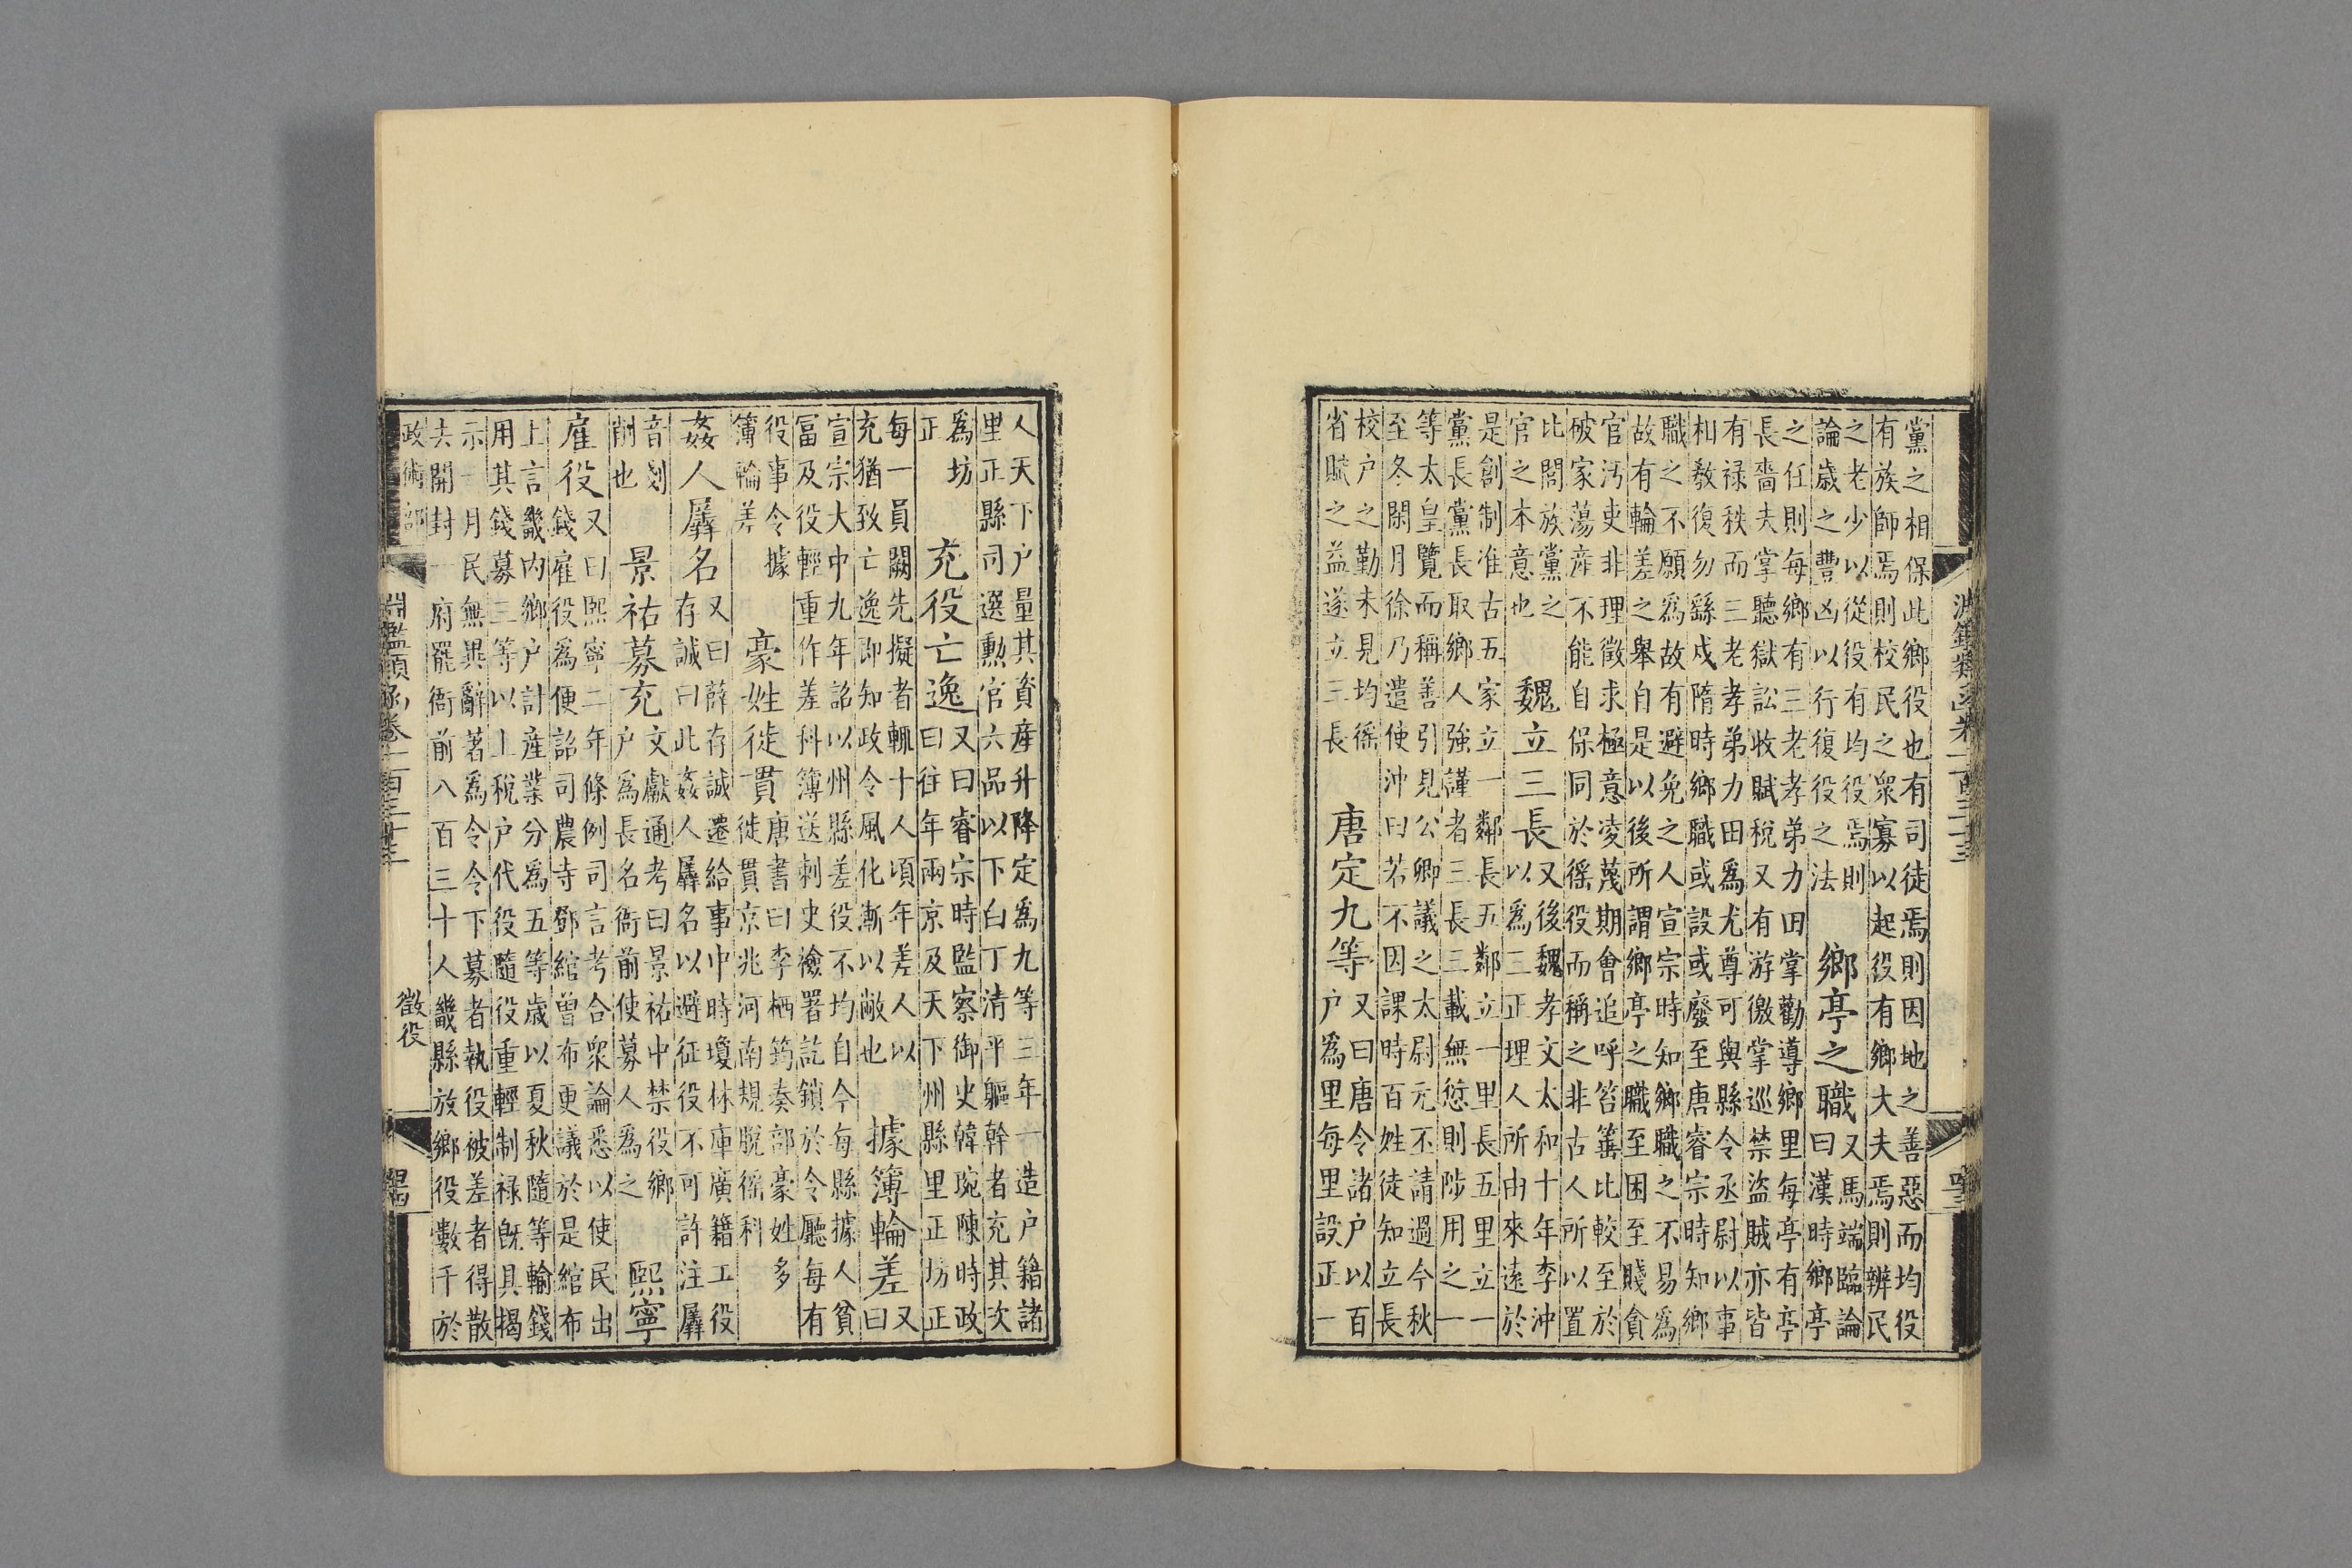 黨之相保此鄉役也有司徒焉則因地之善惡而均役
有族師焉則校民之衆寡以起役有鄉大夫焉則辨民
之老少以從役有均役焉則
論歲之豐凶以行復役之法
鄉亭之職
又馬端臨論
曰漢時鄉亭
之任則每鄉有三老孝弟力田掌勸導鄉里每亭有亭
長嗇夫掌聽獄訟收賦稅又有游徼掌巡禁盜賊亦皆
有禄秩而三老孝弟力田爲尤尊可與縣令丞尉以事
相敎復勿繇戍隋時鄉職或設或廢至唐睿宗時知鄉
職之不願爲故有避免之人宣宗時知鄉職之不易爲
故有輪差之舉自是以後所謂鄉亭之職至困至賤貪
官汚吏非理徵求極意凌蔑期會追呼笞箠比較至於
破家蕩產不能自保同於徭役而稱之非古人所以置
比閭族黨之
官之本意也
魏立三長
又後魏孝文太和十年李沖
以爲三正理人所由來遠於
是創制准古五家立一鄰長五鄰立一里長五里立一
黨長黨長取鄉人強謹者三長三載無愆則陟用之一
等太皇覽而稱善引見公卿議之太尉元丕請過今秋
至冬閑月徐乃遣使沖曰若不因課時百姓徒知立長
校户之勤未見均徭
省賦之益遂立三長
唐定九等
又曰唐令諸户以百
户爲里每里設正一
淵鑑類函卷一百三十三
人天下户量其資產升降定爲九等三年一造户籍諸
里正縣司選勲官六品以下白丁清平軀幹者充其次
爲坊
正
充役亡逸
又曰睿宗時監察御史韓琬陳時政
曰往年兩京及天下州縣里正坊正
每一員闕先擬者輒十人頃年差人以
充猶致亡逸即知政令風化漸以敝也
據簿輪差
又
曰
宣宗大中九年詔以州縣差役不均自今每縣據人貧
富及役輕重作差科簿送刺史檢署訖鎖於令廳每有
役事令據
簿輪差
豪姓徙貫
唐書曰李栖筠奏部豪姓多
徙貫京兆河南規脫徭科
姦人羼名
又曰薛存誠遷給事中時瓊林庫廣籍工役
存誠曰此姦人羼名以避征役不可許注羼
音剗
削也
景祐募充
文獻通考曰景祐中禁役鄉
户爲長名衙前使募人爲之
熙寧
雇役
又曰熙寧二年條例司言考合衆論悉以使民出
錢雇役爲便詔司農寺鄧綰曾布更議於是綰布
上言畿内鄉户計產業分爲五等歲以夏秋隨等輸錢
用其錢募三等以上稅户代役隨役重輕制禄旣具揭
示一月民無異辭著爲令令下募者執役被差者得散
去開封一府罷衙前八百三十人畿縣放鄉役數千於
政術部
淵鑑類函卷一百三十三
徵役